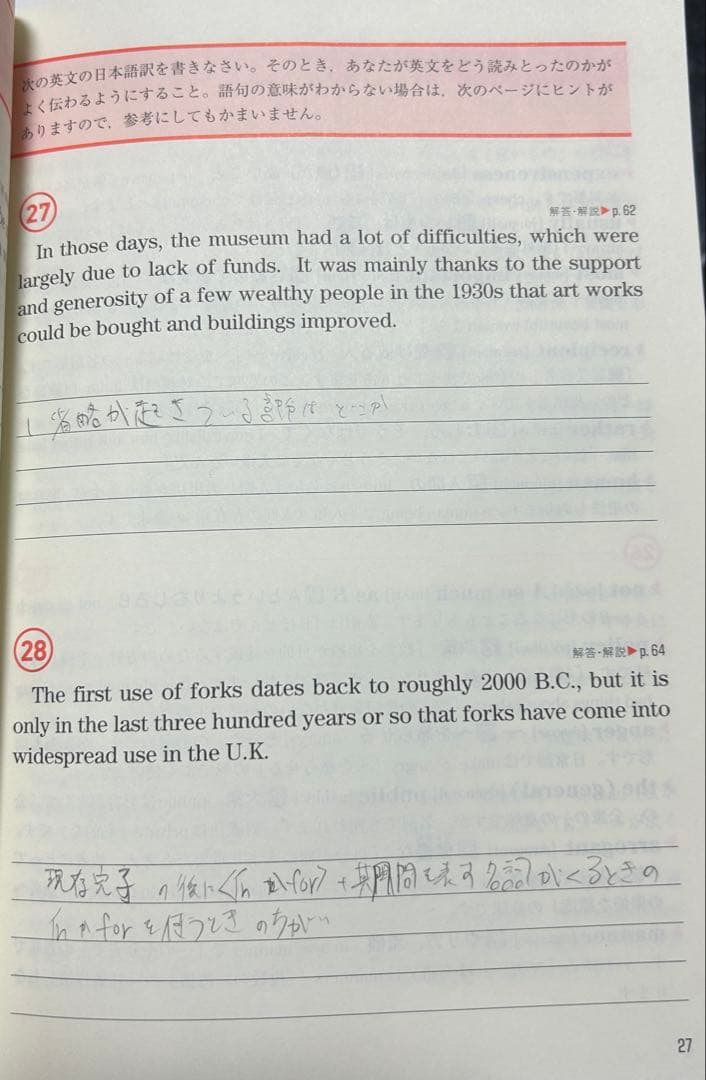 次の英文の日本語訳を書きなさい。そのとき，あなたが英文をどう読みとったのかが
よく伝わるようにすること。語句の意味がわからない場合は，次のページにヒントが
ありますので，参考にしてもかまいません。
27
解答・解説▶p.62
In those days, the museum had a lot of difficulties, which were
largely due to lack of funds. It was mainly thanks to the support
and generosity of a few wealthy people in the 1930s that art works
could be bought and buildings improved.
省略が起きている部分はどこか
28
解答・解説▶p.64
The first use of forks dates back to roughly 2000 B.C., but it is
only in the last three hundred years or so that forks have come into
widespread use in the U.K.
現在完了の後に〈In か for〉+期間を表す名詞がくるときの
In か for を使うときのちがい
27